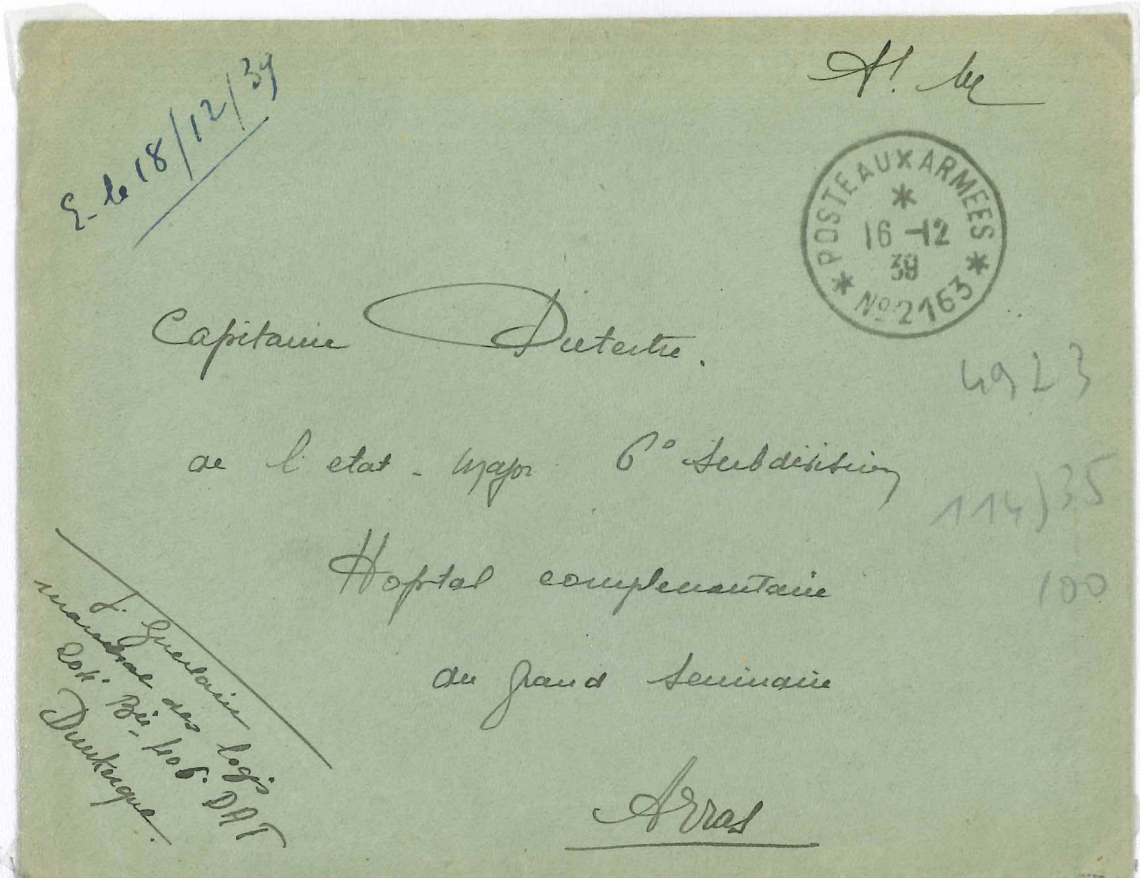 E. le 18/12/39
POSTE AUX ARMEES
16 -12
39
N° 2163
Capitaine Dutertre.
4923
de l'etat-major 6° Subdivision
114)35
Hopital complementaire
100
du grand Seminaire
Arras
J. Guerlain
marechal des logis
204° Bie. 406° DAT
Dunkerque.